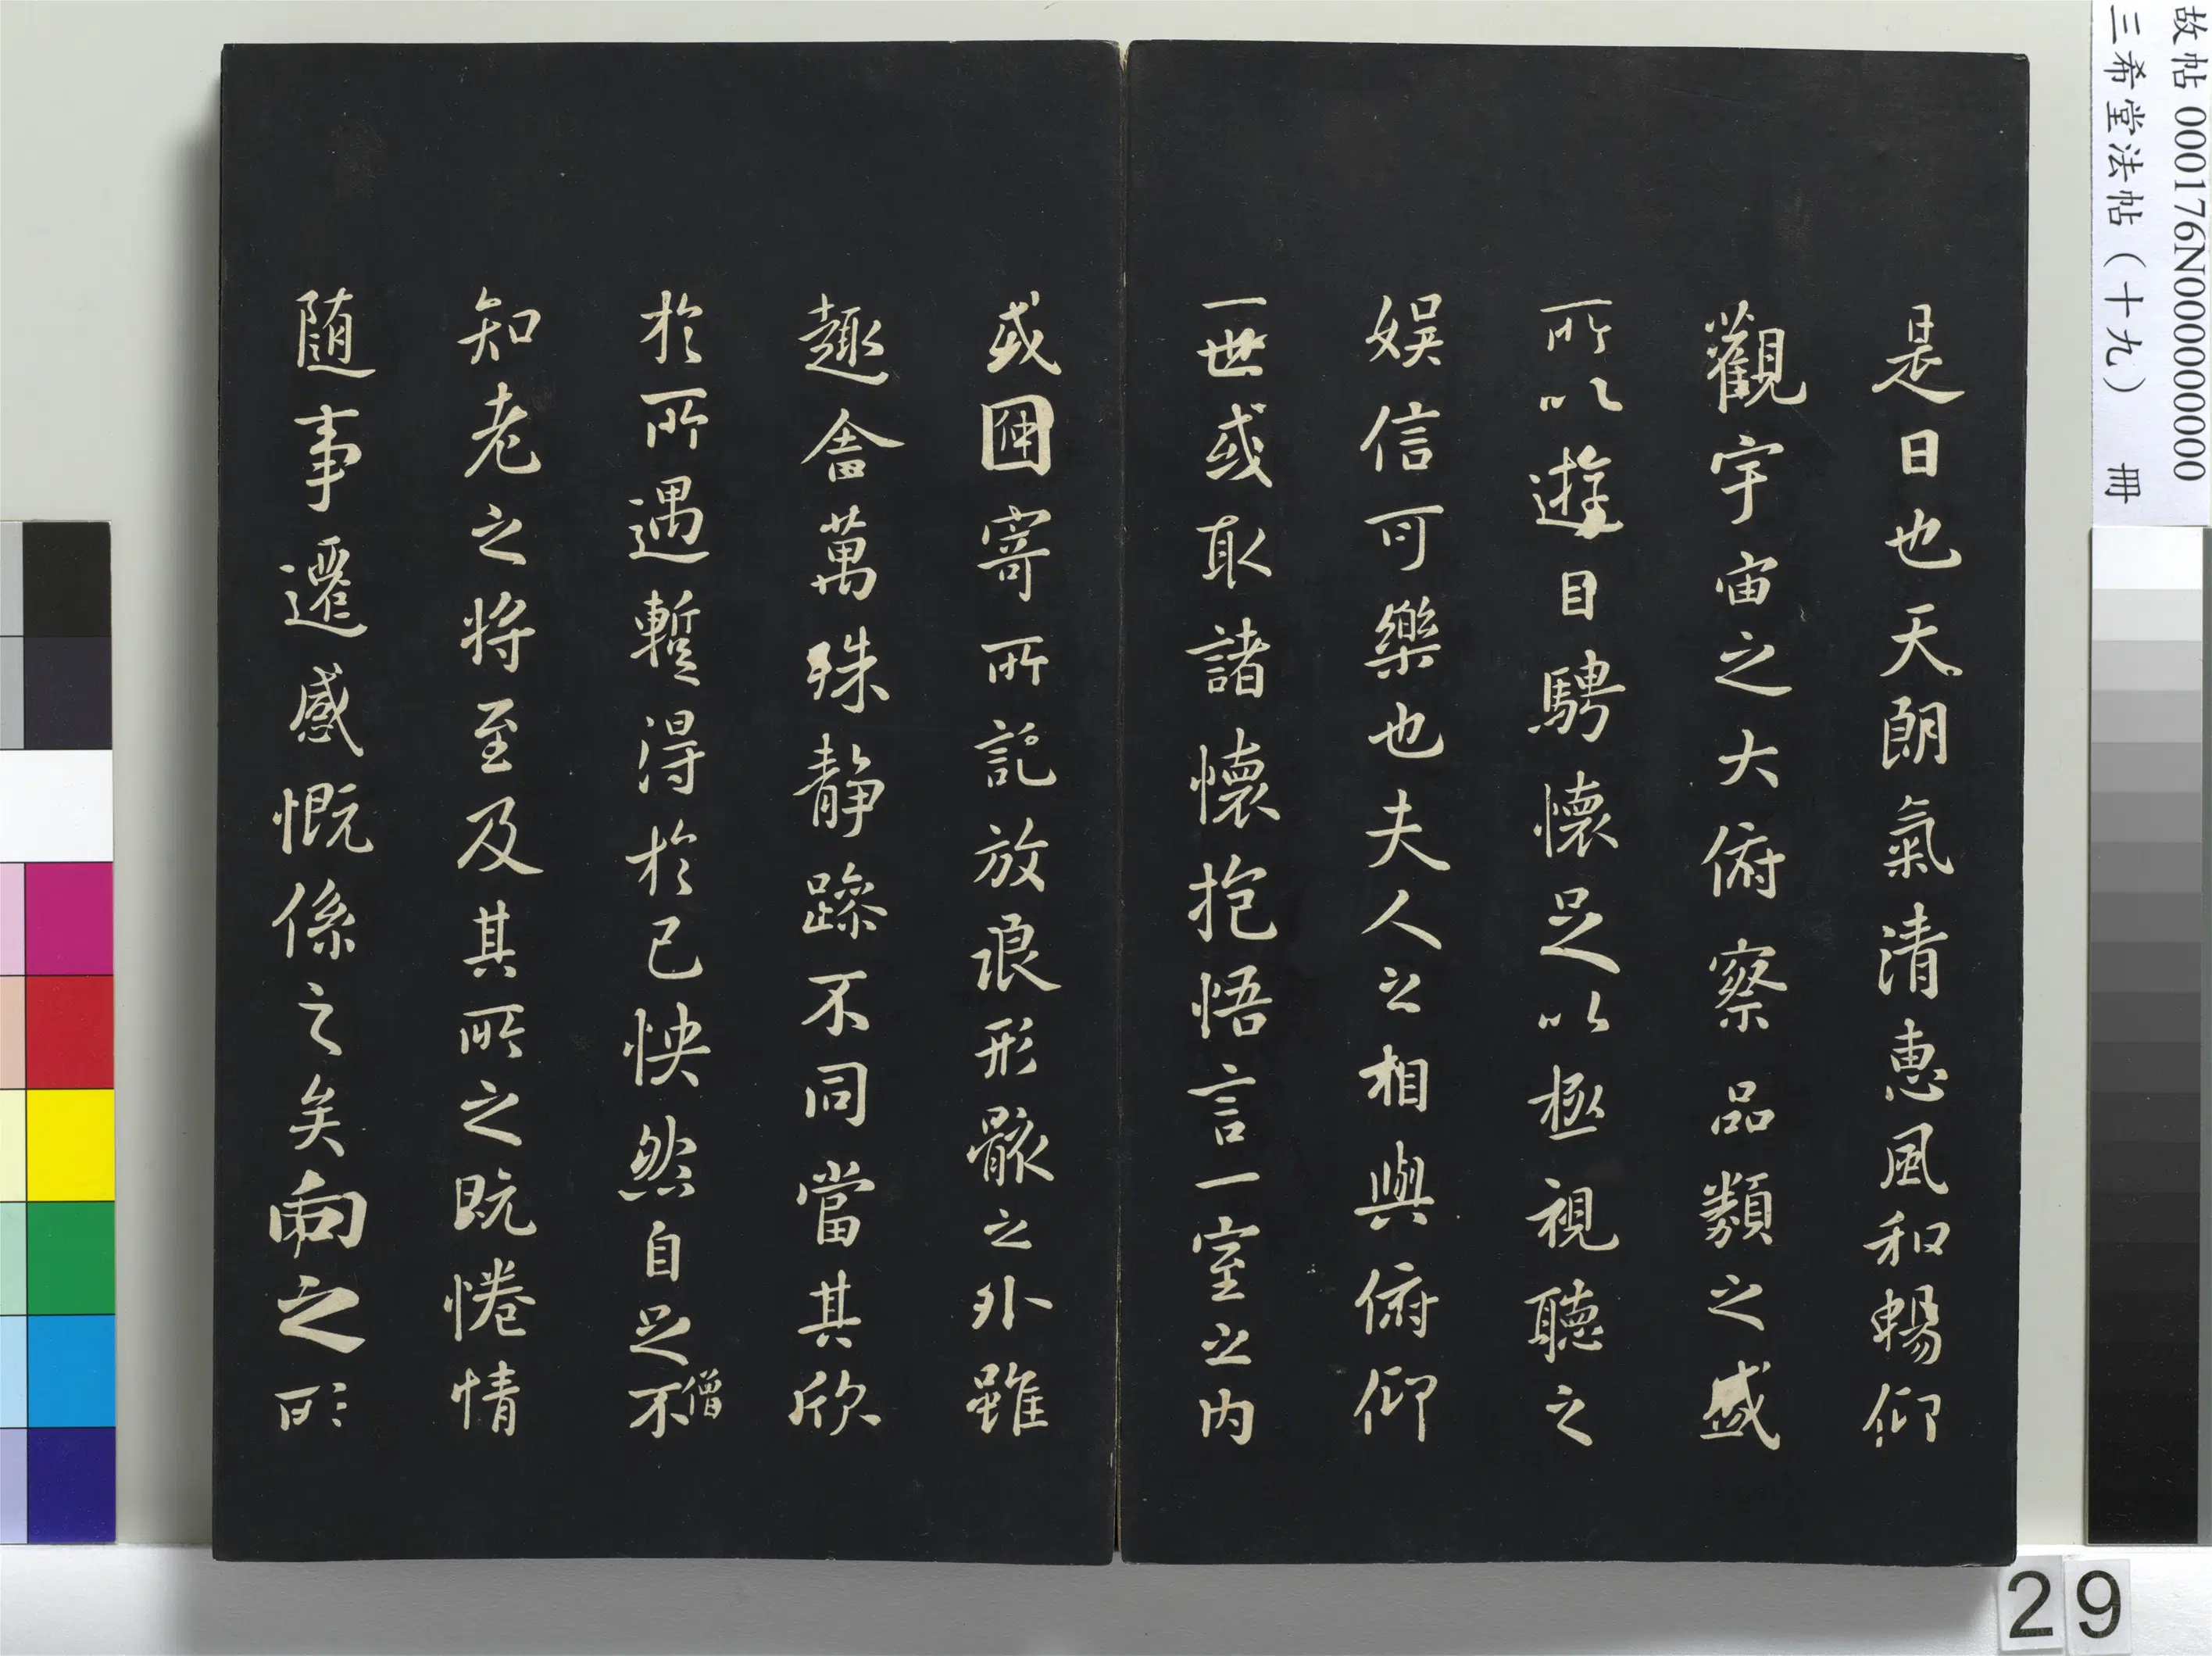 故帖 000176N000000000
三希堂法帖（十九） 冊
是日也天朗氣清惠風和暢仰
觀宇宙之大俯察品類之盛
所以遊目騁懷足以極視聽之
娛信可樂也夫人之相與俯仰
一世或取諸懷抱悟言一室之内
或因寄所託放浪形骸之外雖
趣舍萬殊静躁不同當其欣
於所遇蹔得於己怏然自足不
僧
知老之将至及其所之既惓情
随事遷感慨係之矣向之所
29